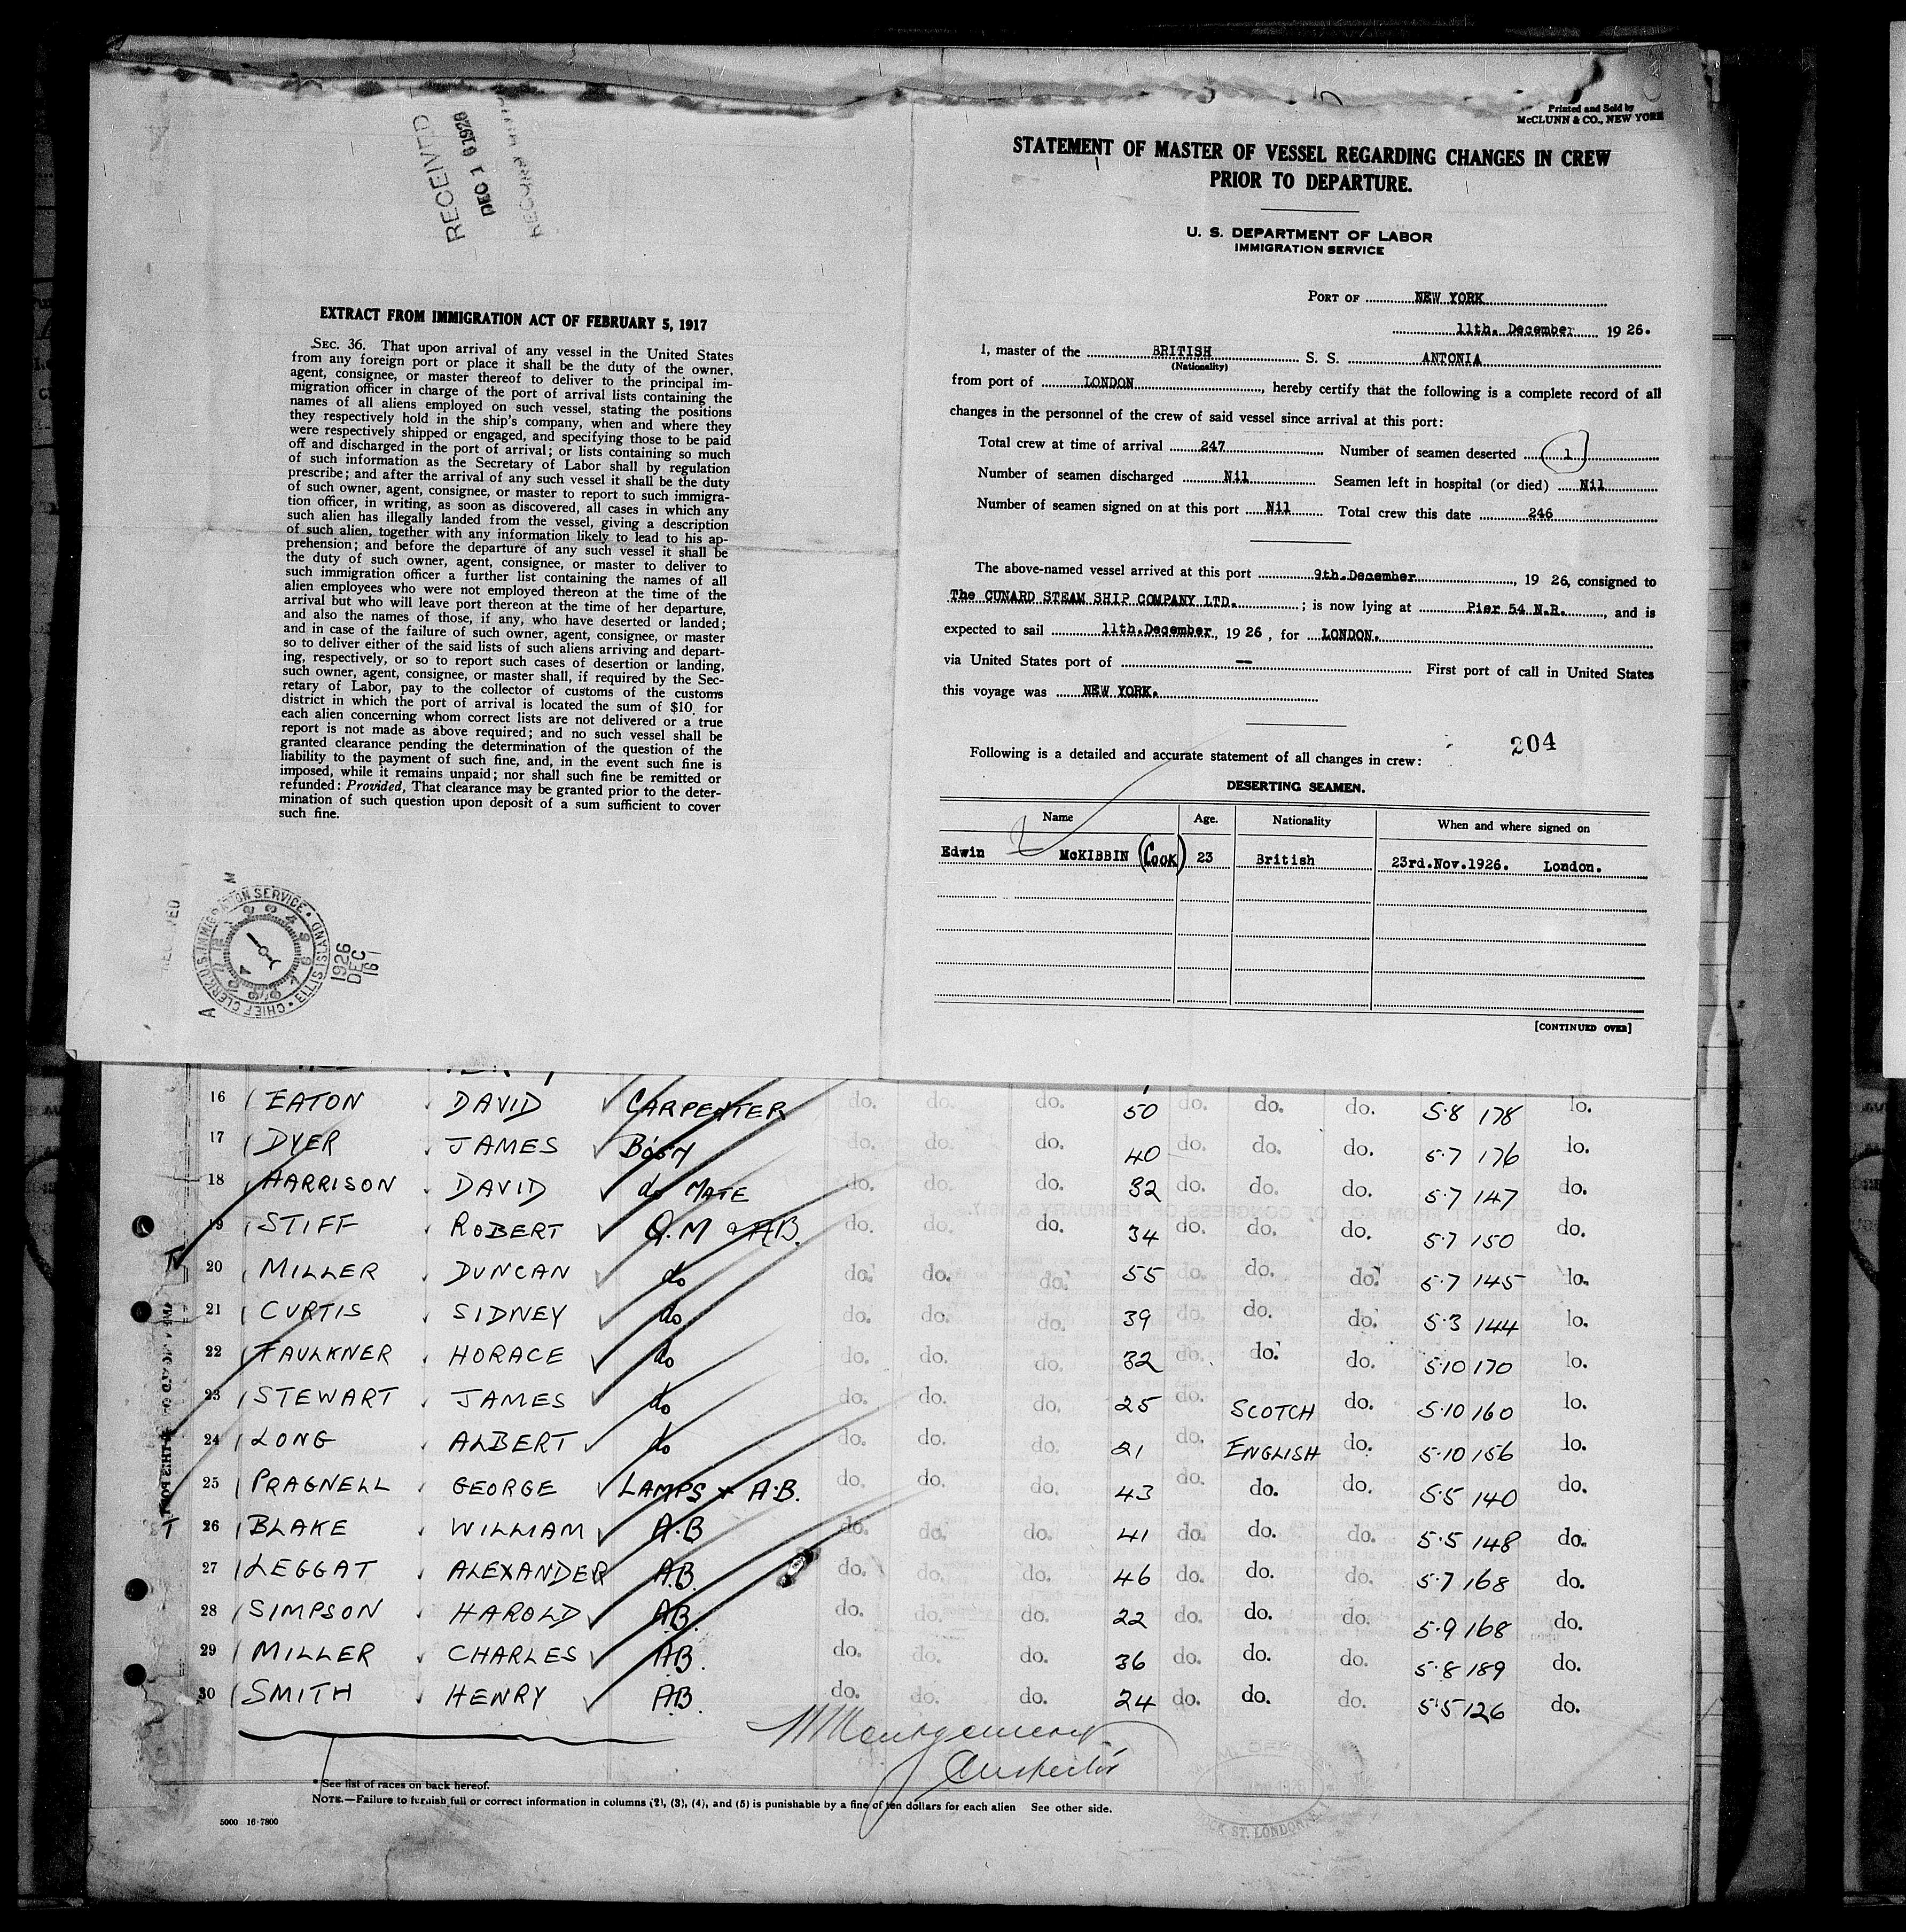 RECEIVED
DEC 16 1926
EXTRACT FROM IMMIGRATION ACT OF FEBRUARY 5, 1917
SEC. 36. That upon arrival of any vessel in the United States
from any foreign port or place it shall be the duty of the owner,
agent, consignee, or master thereof to deliver to the principal im-
migration officer in charge of the port of arrival lists containing the
names of all aliens employed on such vessel, stating the positions
they respectively hold in the ship's company, when and where they
were respectively shipped or engaged, and specifying those to be paid
off and discharged in the port of arrival; or lists containing so much
of such information as the Secretary of Labor shall by regulation
prescribe; and after the arrival of any such vessel it shall be the duty
of such owner, agent, consignee, or master to report to such immigra-
tion officer, in writing, as soon as discovered, all cases in which any
such alien has illegally landed from the vessel, giving a description
of such alien, together with any information likely to lead to his ap-
prehension; and before the departure of any such vessel it shall be
the duty of such owner, agent, consignee, or master to deliver to
such immigration officer a further list containing the names of all
alien employees who were not employed thereon at the time of the
arrival but who will leave port thereon at the time of her departure,
and also the names of those, if any, who have deserted or landed;
and in case of the failure of such owner, agent, consignee, or master
so to deliver either of the said lists of such aliens arriving and depart-
ing, respectively, or so to report such cases of desertion or landing,
such owner, agent, consignee, or master shall, if required by the Sec-
retary of Labor, pay to the collector of customs of the customs
district in which the port of arrival is located the sum of $10 for
each alien concerning whom correct lists are not delivered or a true
report is not made as above required; and no such vessel shall be
granted clearance pending the determination of the question of the
liability to the payment of such fine, and, in the event such fine is
imposed, while it remains unpaid; nor shall such fine be remitted or
refunded: Provided, That clearance may be granted prior to the deter-
mination of such question upon deposit of a sum sufficient to cover
such fine.
CHIEF CLERK U.S. IMMIGRATION SERVICE ELLIS ISLAND
1926
DEC
16
Printed and Sold by
McCLUNN & CO., NEW YORK
STATEMENT OF MASTER OF VESSEL REGARDING CHANGES IN CREW
PRIOR TO DEPARTURE.
U. S. DEPARTMENT OF LABOR
IMMIGRATION SERVICE
PORT OF NEW YORK
11th. December 1926.
I, master of the BRITISH S. S. ANTONIA
(Nationality)
from port of LONDON, hereby certify that the following is a complete record of all
changes in the personnel of the crew of said vessel since arrival at this port:
Total crew at time of arrival 247 Number of seamen deserted 1
Number of seamen discharged Nil Seamen left in hospital (or died) Nil
Number of seamen signed on at this port Nil Total crew this date 246
The above-named vessel arrived at this port 9th.December, 19 26, consigned to
The CUNARD STEAM SHIP COMPANY LTD. ; is now lying at Pier 54 N.R., and is
expected to sail 11th.December, 19 26, for LONDON.
via United States port of — First port of call in United States
this voyage was NEW YORK.
204
Following is a detailed and accurate statement of all changes in crew:
DESERTING SEAMEN.
Name Age. Nationality When and where signed on
Edwin McKIBBIN (COOK) 23 British 23rd.Nov.1926. London.
[CONTINUED OVER]
16 EATON DAVID CARPENTER do. do. do. 50 do. do. do. 5.8 178 lo.
17 DYER JAMES BOSN do. do. do. 40 do. do. do. 5.7 176 lo.
18 HARRISON DAVID do MATE do. do. do. 32 do. do. do. 5.7 147 do.
19 STIFF ROBERT Q.M & A.B. do. do. do. 34 do. do. do. 5.7 150 do.
20 MILLER DUNCAN do do. do. do. 55 do. do. do. 5.7 145 lo.
21 CURTIS SIDNEY do do. do. do. 39 do. do. do. 5.3 144 lo.
22 FAULKNER HORACE do do. do. do. 32 do. do. do. 5.10 170 lo.
23 STEWART JAMES do do. do. do. 25 do. SCOTCH do. 5.10 160 lo.
24 LONG ALBERT do do. do. do. 21 do. ENGLISH do. 5.10 156 lo.
25 PRAGNELL GEORGE LAMPS + A.B. do. do. do. 43 do. do. do. 5.5 140 do.
26 BLAKE WILLIAM A.B do. do. do. 41 do. do. do. 5.5 148 do.
27 LEGGAT ALEXANDER A.B. do. do. do. 46 do. do. do. 5.7 168 do.
28 SIMPSON HAROLD A.B. do. do. do. 22 do. do. do. 5.9 168 do.
29 MILLER CHARLES A.B. do. do. do. 36 do. do. do. 5.8 189 do.
30 SMITH HENRY A.B. do. do. do. 24 do. do. do. 5.5 126 do.
Montgomery
Inspector
* See list of races on back hereof.
NOTE.—Failure to furnish full or correct information in columns (2), (3), (4), and (5) is punishable by a fine of ten dollars for each alien See other side.
5000 16-7800
ST. LONDON